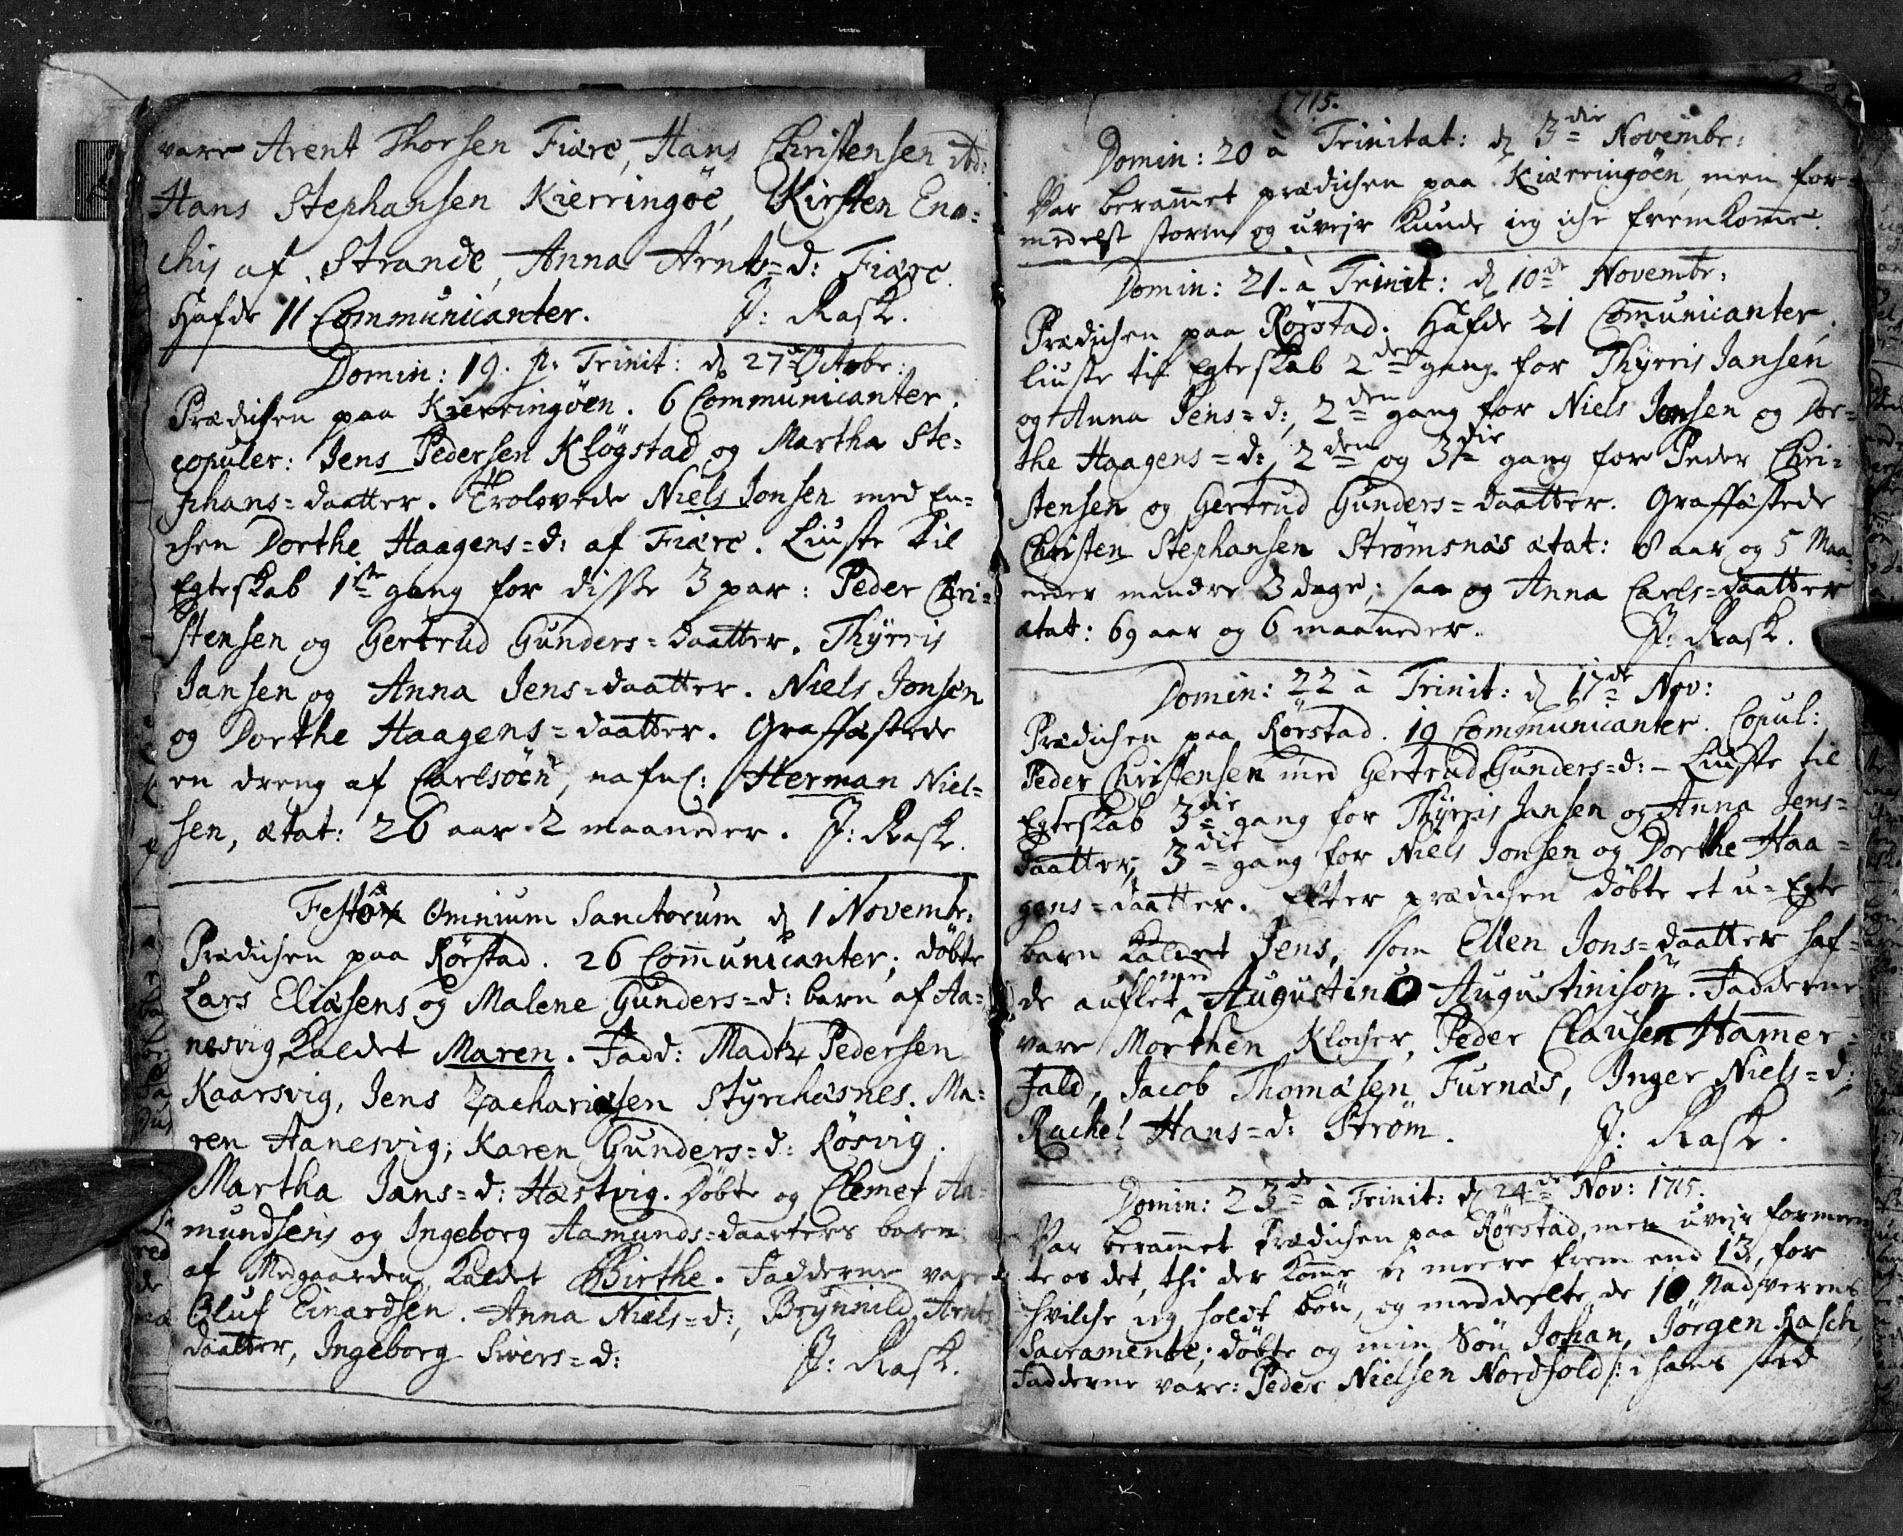 vare Arent Thorsen Fiære, Hans Christensen ibd:
Hans Stephansen Kierringöe, Kirsten Eno=
chis af Strande, Anna Arnts=d: Fiære.
Hafde 11 Communicanter. J: Rask.
Domin: 19. p. Trinit: d 27 Octobr:
Prædichen paa Kierringöen. 6 Communicanter.
copuler: Jens Pedersen Klögstad og Martha Ste=
phans=daatter. Trolovede Niels Jonsen med En=
chen Dorthe Haagens=d: af Fiære. Liuste til
Egteskab 1ste gang for disse 3 par: Peder Chri=
stensen og Gertrud Gunders=daatter. Thÿrris
Jansen og Anna Jens=daatter. Niels Jonsen
og Dorthe Haagens=daatter. Graffæstede
en dreng af Carlsöen, nafnl: Herman Niel=
sen, ætat: 26 aar 2 maaneder. J: Rask.
Festo Omnium Sanctorum d 1 Novembr:
Prædichen paa Rörstad. 26 Communicanter; döbte
Lars Eliæsens og Malene Gunders=d: barn af Aa=
nesvig kaldet Maren. Fadd: Madtz Pedersen
Kaarsvig, Jens Zachariæsen Styrchesnes. Ma=
ren Aanesvig; Karen Gunders=d: Rösvig.
Martha Jans=d: Hæstvig. Döbte og Clemet Aa=
mundsens og Ingeborg Aamunds=daatters barn
af Medgaarden kaldet Birthe. Fadderne vare
Oluf Einardsen. Anna Niels=d:, Brÿnnild Arnts
daatter, Ingeborg Sivers=d: J: Rask.
1715.
Domin: 20 à Trinitat: d 3die Novembr:
Var berammet prædichen paa Kiærringöen, men for=
medelst storm og uveir kunde ieg iche fremkomme.
Domin: 21. à Trinit: d 10de Novembr:
Prædichen paa Rörstad. Hafde 21 Communicanter.
liuste til Egteskab 2den gang for Thÿrris Jansen
og Anna Jens=d:, 2den gang for Niels Jonsen og Dor=
the Haagens=d:, 2den og 3die gang for Peder Chri=
stensen og Gertrud Gunders=daatter. Graffæstede
Christen Stephansen Strömsnæs ætat: 8 aar og 5 Maa=
neder mindre 3 dage; saa og Anna Carls=daatter
ætat: 69 aar og 6 maaneder. J: Rask.
Domin: 22 à Trinit: d 17de Nov:
Prædichen paa Rörstad. 19 Communicanter. Copul:
Peder Christensen med Gertrud Gunders=d: – Liuste til
Egteskab 3die gang for Thÿrris Jansen og Anna Jens=
daatter, 3die gang for Niels Jonsen og Dorthe Haa=
gens=daatter. Efter prædichen döbte et u=Egte
barn kaldet Jens, som Ellen Jons=daatter haf=
de auflet med Augustinus Augustinisön. Fadderne
vare Morthen Klocher, Peder Clausen Hammer=
fald, Jacob Thomæsen Furnæs, Inger Niels=d:
Rachel Hans=d: Ström. J: Rask.
Domin: 23de à Trinit: d 24de Nov: 1715.
Var berammet Prædichen paa Rörstad, men uveir formeen
te os det, thi der komme ei meere frem end 13, for
hvilche ieg holdt bön, og meddeelte de 10 Nadverens
Sacramente; döbte og min Sön Johan Jörgen Rasch
Fadderne vare: Peder Nielsen Nordfold /: i hans sted